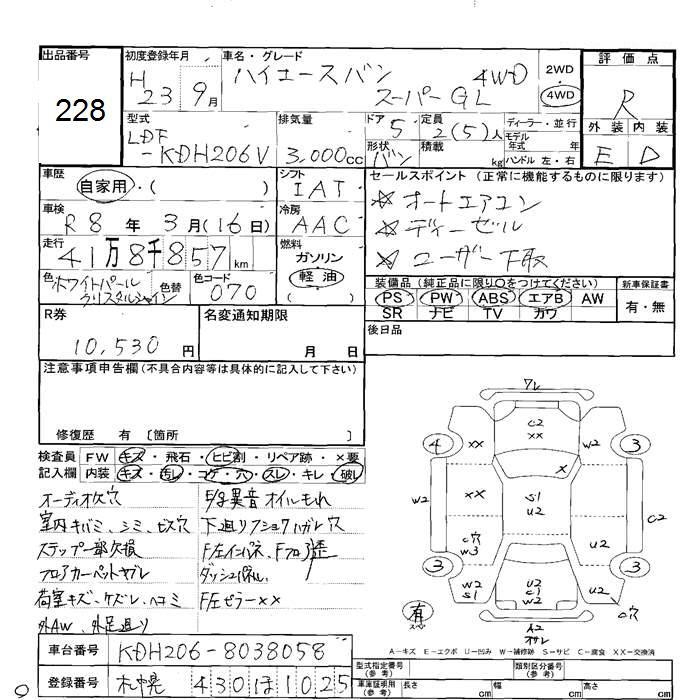 出品番号
228
初度登録年月
H 23年 9月
車名・グレード
ハイエースバン 4WD
スーパーGL
2WD
4WD
評価点
R
外装 内装
E D
型式
LDF
-KDH206V
排気量
3,000cc
ドア
5
形状
バン
定員
2(5)人
積載
kg
ディーラー・並行
モデル
年式 年
ハンドル 左・右
車歴
自家用・( )
シフト
IAT
セールスポイント(正常に機能するものに限ります)
オートエアコン
ディーゼル
ユーザー下取
車検
R8年 3月(16日)
冷房
AAC
走行
41万8千857km
燃料
ガソリン
軽油
( )
色
ホワイトパール
クリスタルシャイン
色替
色コード
070
装備品(純正品に限り○をつけてください)
PS PW ABS エアB AW
SR ナビ TV カワ
新車保証書
有・無
後日品
R券
10,530円
名変通知期限
月 日
注意事項申告欄(不具合内容等は具体的に記入して下さい)
修復歴 有 〔箇所 〕
検査員
記入欄
FW キズ・飛石・ヒビ割・リペア跡・×要
内装 キズ・汚レ・コゲ・穴・スレ・キレ・破レ
オーディオ欠穴
室内キバミ、シミ、ビス穴
ステップ一部欠損
フロアカーペットヤブレ
荷室キズ、ケズレ、ヘコミ
外AW、外足廻り
異音オイルもれ
下廻り
穴
F左ピラー××
ワレ
C2
××
××
W2
4
3
×
W2
××
S1
U2
U2
C2
C穴
W3
3
3
W2
S1
U2
C1
W2
U2
C穴
有
スペア
A2
オサレ
A-キズ E-エクボ U-凹み W-補修跡 S-サビ C-腐食 XX-交換済
車台番号
KDH206-8038058
登録番号
札幌 430 ほ 1025
型式指定番号
(参考)
類別区分番号
(参考)
車庫証明用
(参考)
長さ cm
幅 cm
高さ cm